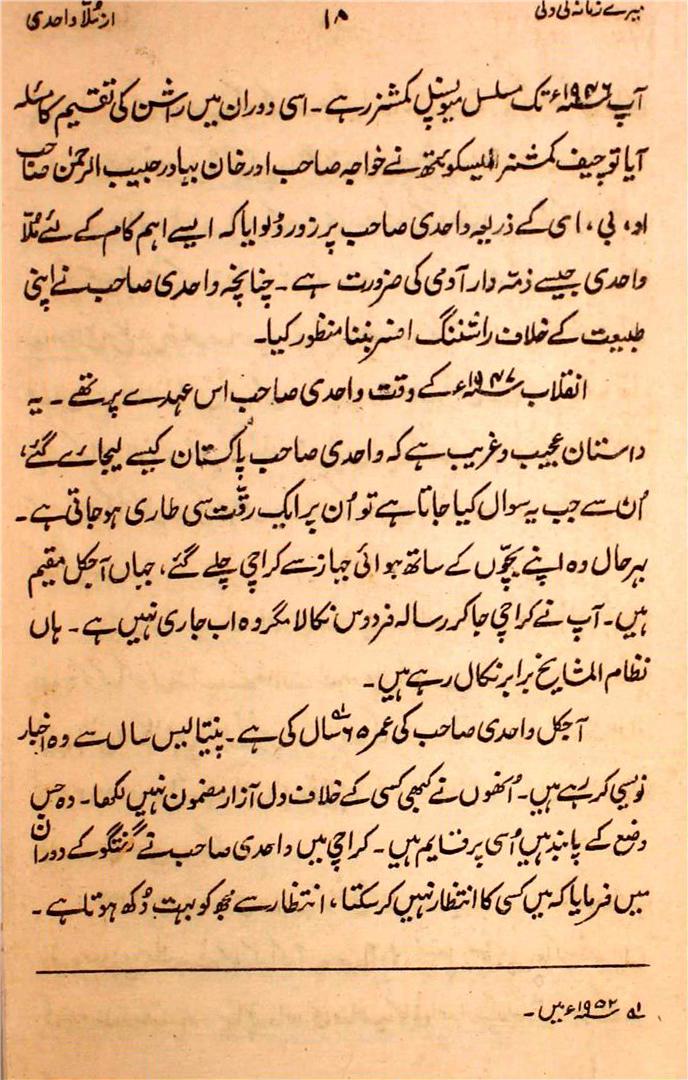 میرے زمانہ کی دلی ۱۸ از مُلّا واحدی
آپ ۱۹۴۶ء تک مسلسل میونسپل کمشنر رہے۔ اسی دوران میں راشن کی تقسیم کا مسئلہ
آیا تو چیف کمشنر ایسکوِیتھ نے خواجہ صاحب اور خان بہادر حبیب الرحمٰن صاحب
او، بی، ای کے ذریعہ واحدی صاحب پر زور ڈلوایا کہ ایسے اہم کام کے لئے مُلّا
واحدی جیسے ذمّہ دار آدمی کی ضرورت ہے۔ چنانچہ واحدی صاحب نے اپنی
طبیعت کے خلاف راشننگ افسر بننا منظور کیا۔
انقلاب ۱۹۴۷ء کے وقت واحدی صاحب اس عہدے پر تھے۔ یہ
داستان عجیب و غریب ہے کہ واحدی صاحب پاکستان کیسے لیجائے گئے،
اُن سے جب یہ سوال کیا جاتا ہے تو اُن پر ایک رقّت سی طاری ہو جاتی ہے۔
بہرحال وہ اپنے بچّوں کے ساتھ ہوائی جہاز سے کراچی چلے گئے، جہاں آجکل مقیم
ہیں۔ آپ نے کراچی جا کر رسالہ فردوس نکالا مگر وہ اب جاری نہیں ہے۔ ہاں
نظام المشایخ برابر نکال رہے ہیں۔
آجکل واحدی صاحب کی عمر ۶۵ سال کی ہے۔ پنتالیس سال سے وہ اخبار
نویسی کر رہے ہیں۔ اُنھوں نے کبھی کسی کے خلاف دل آزار مضمون نہیں لکھا۔ وہ جس
وضع کے پابند ہیں اُسی پر قایم ہیں۔ کراچی میں واحدی صاحب نے گفتگو کے دوران
میں فرمایا کہ میں کسی کا انتظار نہیں کر سکتا، انتظار سے مجھ کو بہت دُکھ ہوتا ہے۔
لہ ۱۹۵۲ء میں۔